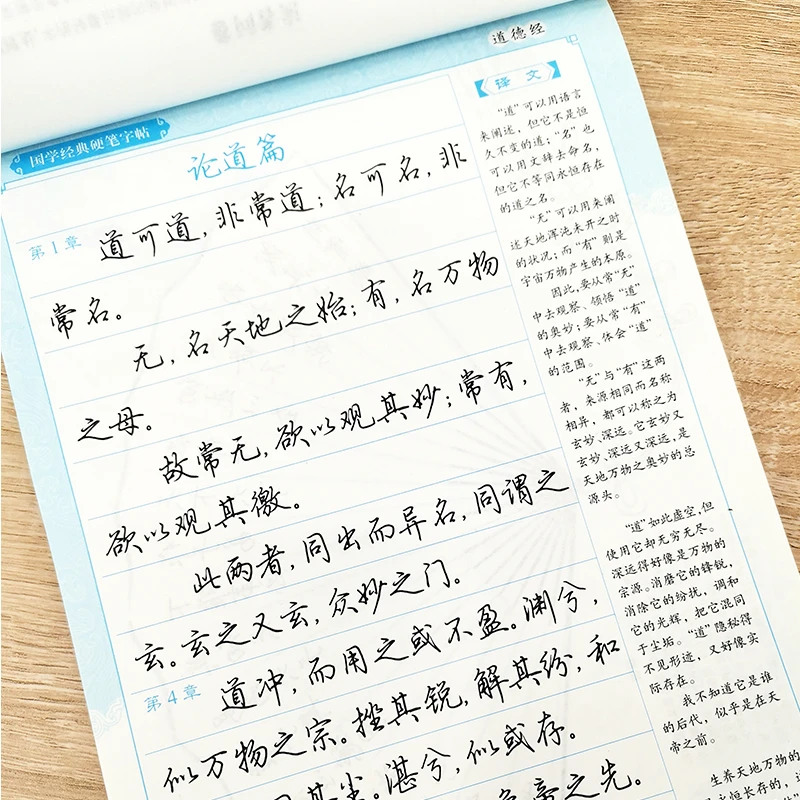 道德经
国学经典硬笔字帖
论道篇
第1章 道可道，非常道；名可名，非
常名。
无，名天地之始；有，名万物
之母。
故常无，欲以观其妙；常有，
欲以观其徼。
此两者，同出而异名，同谓之
玄。玄之又玄，众妙之门。
第4章 道冲，而用之或不盈。渊兮，
似万物之宗。挫其锐，解其纷，和
其尘。湛兮，似或存。
帝之先。
译文
“道”可以用语言
来阐述，但它不是恒
久不变的道；“名”也
可以用文辞去命名，
但它不等同永恒存在
的道之名。
“无”可以用来阐
述天地浑沌未开之时
的状况；而“有”则是
宇宙万物产生的本原。
因此，要从常“无”
中去观察、领悟“道”
的奥妙；要从常“有”
中去观察、体会“道”
的范围。
“无”与“有”这两
者，来源相同而名称
相异，都可以称之为
玄妙、深远。它玄妙又
玄妙、深远又深远，是
天地万物之奥妙的总
源头。
“道”如此虚空，但
使用它却无穷无尽。
深远得好像是万物的
宗源。消磨它的锋锐，
消除它的纷扰，调和
它的光辉，把它混同
于尘垢。“道”隐秘得
不见形迹，又好像实
际存在。
我不知道它是谁
的后代，似乎是在天
帝之前。
生养天地万物的
恒长存的，